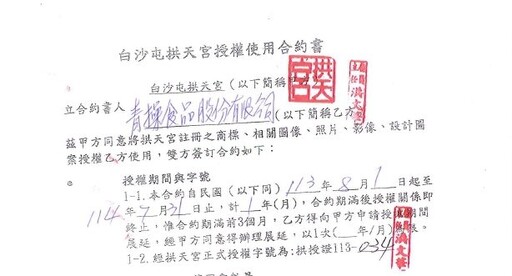 白沙屯拱天宮授權使用合約書
白沙屯拱天宮(以下簡稱甲方)
立合約書人
青操食品股份有限公司(以下簡稱乙方)
茲甲方同意將拱天宮註冊之商標、相關圖像、照片、影像、設計圖
案授權乙方使用,雙方簽訂合約如下:
授權期間與字號
1-1.本合約自民國(以下同)113年8月1日起至
114年7月31日止,計1年(月),合約期滿後授權關係即
終止,惟合約期滿前3個月,乙方得向甲方申請授權期間
展延,經甲方同意得辦理展延,以1次(年/月)為限。
1-2.經拱天宮正式授權字號為:拱授證113-034
拱天宮